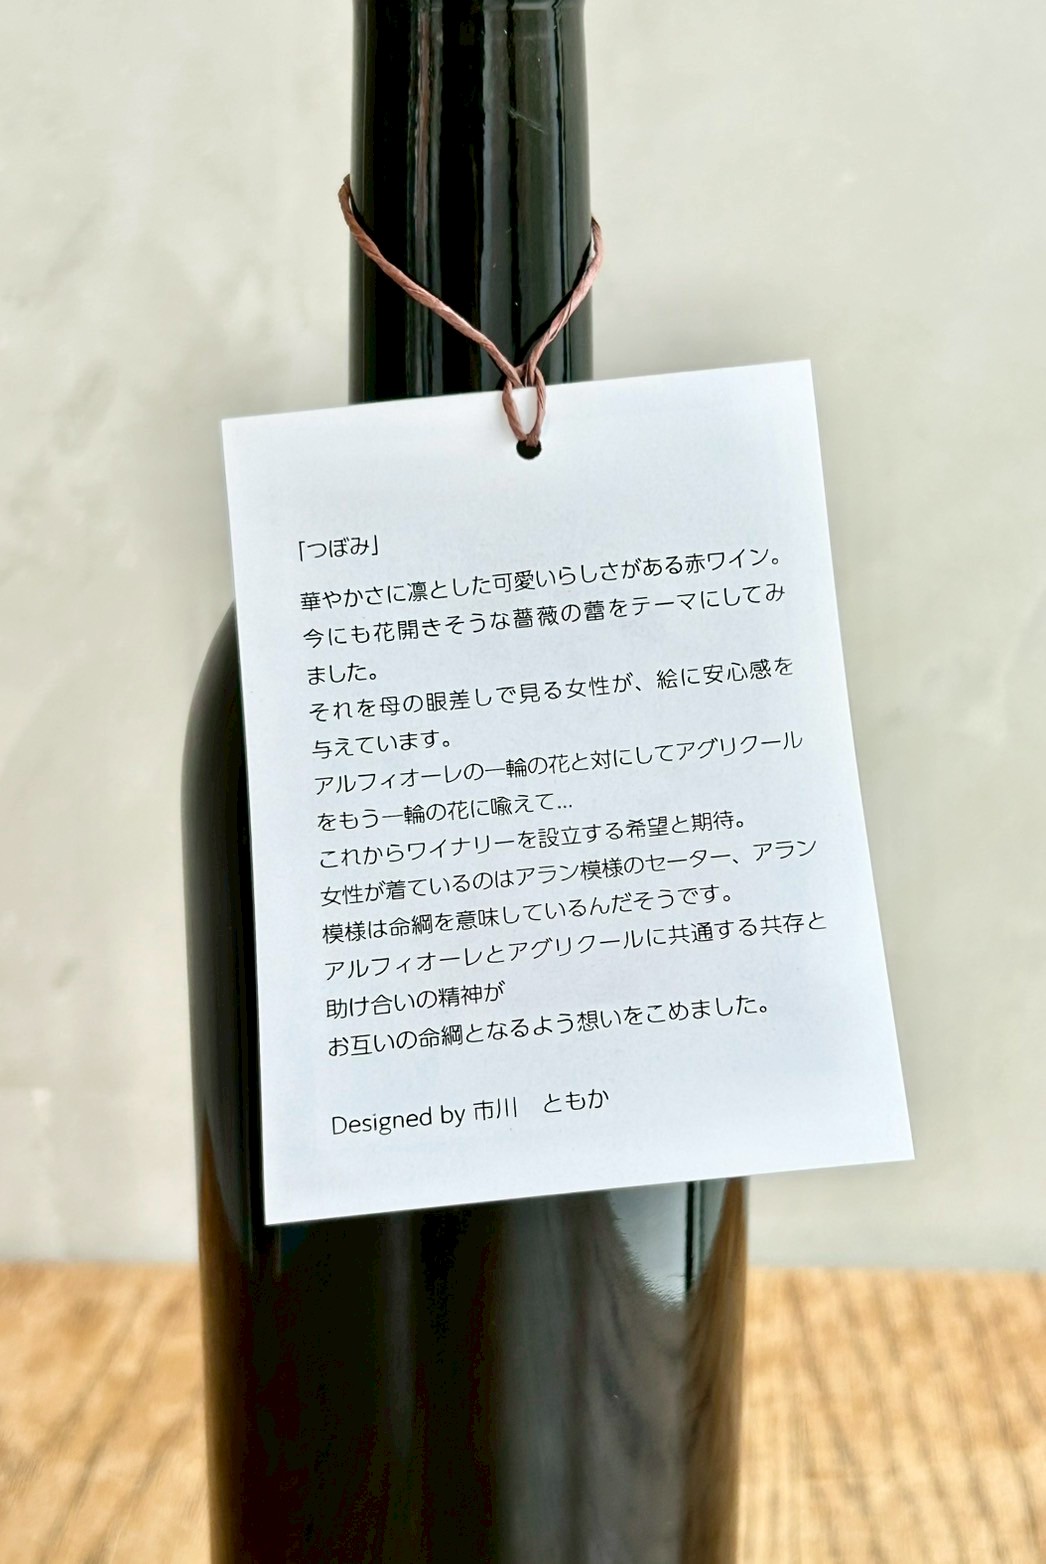 「つぼみ」
華やかさに凛とした可愛いらしさがある赤ワイン。
今にも花開きそうな薔薇の蕾をテーマにしてみ
ました。
それを母の眼差しで見る女性が、絵に安心感を
与えています。
アルフィオーレの一輪の花と対にしてアグリクール
をもう一輪の花に喩えて...
これからワイナリーを設立する希望と期待。
女性が着ているのはアラン模様のセーター、アラン
模様は命綱を意味しているんだそうです。
アルフィオーレとアグリクールに共通する共存と
助け合いの精神が
お互いの命綱となるよう想いをこめました。
Designed by 市川　ともか